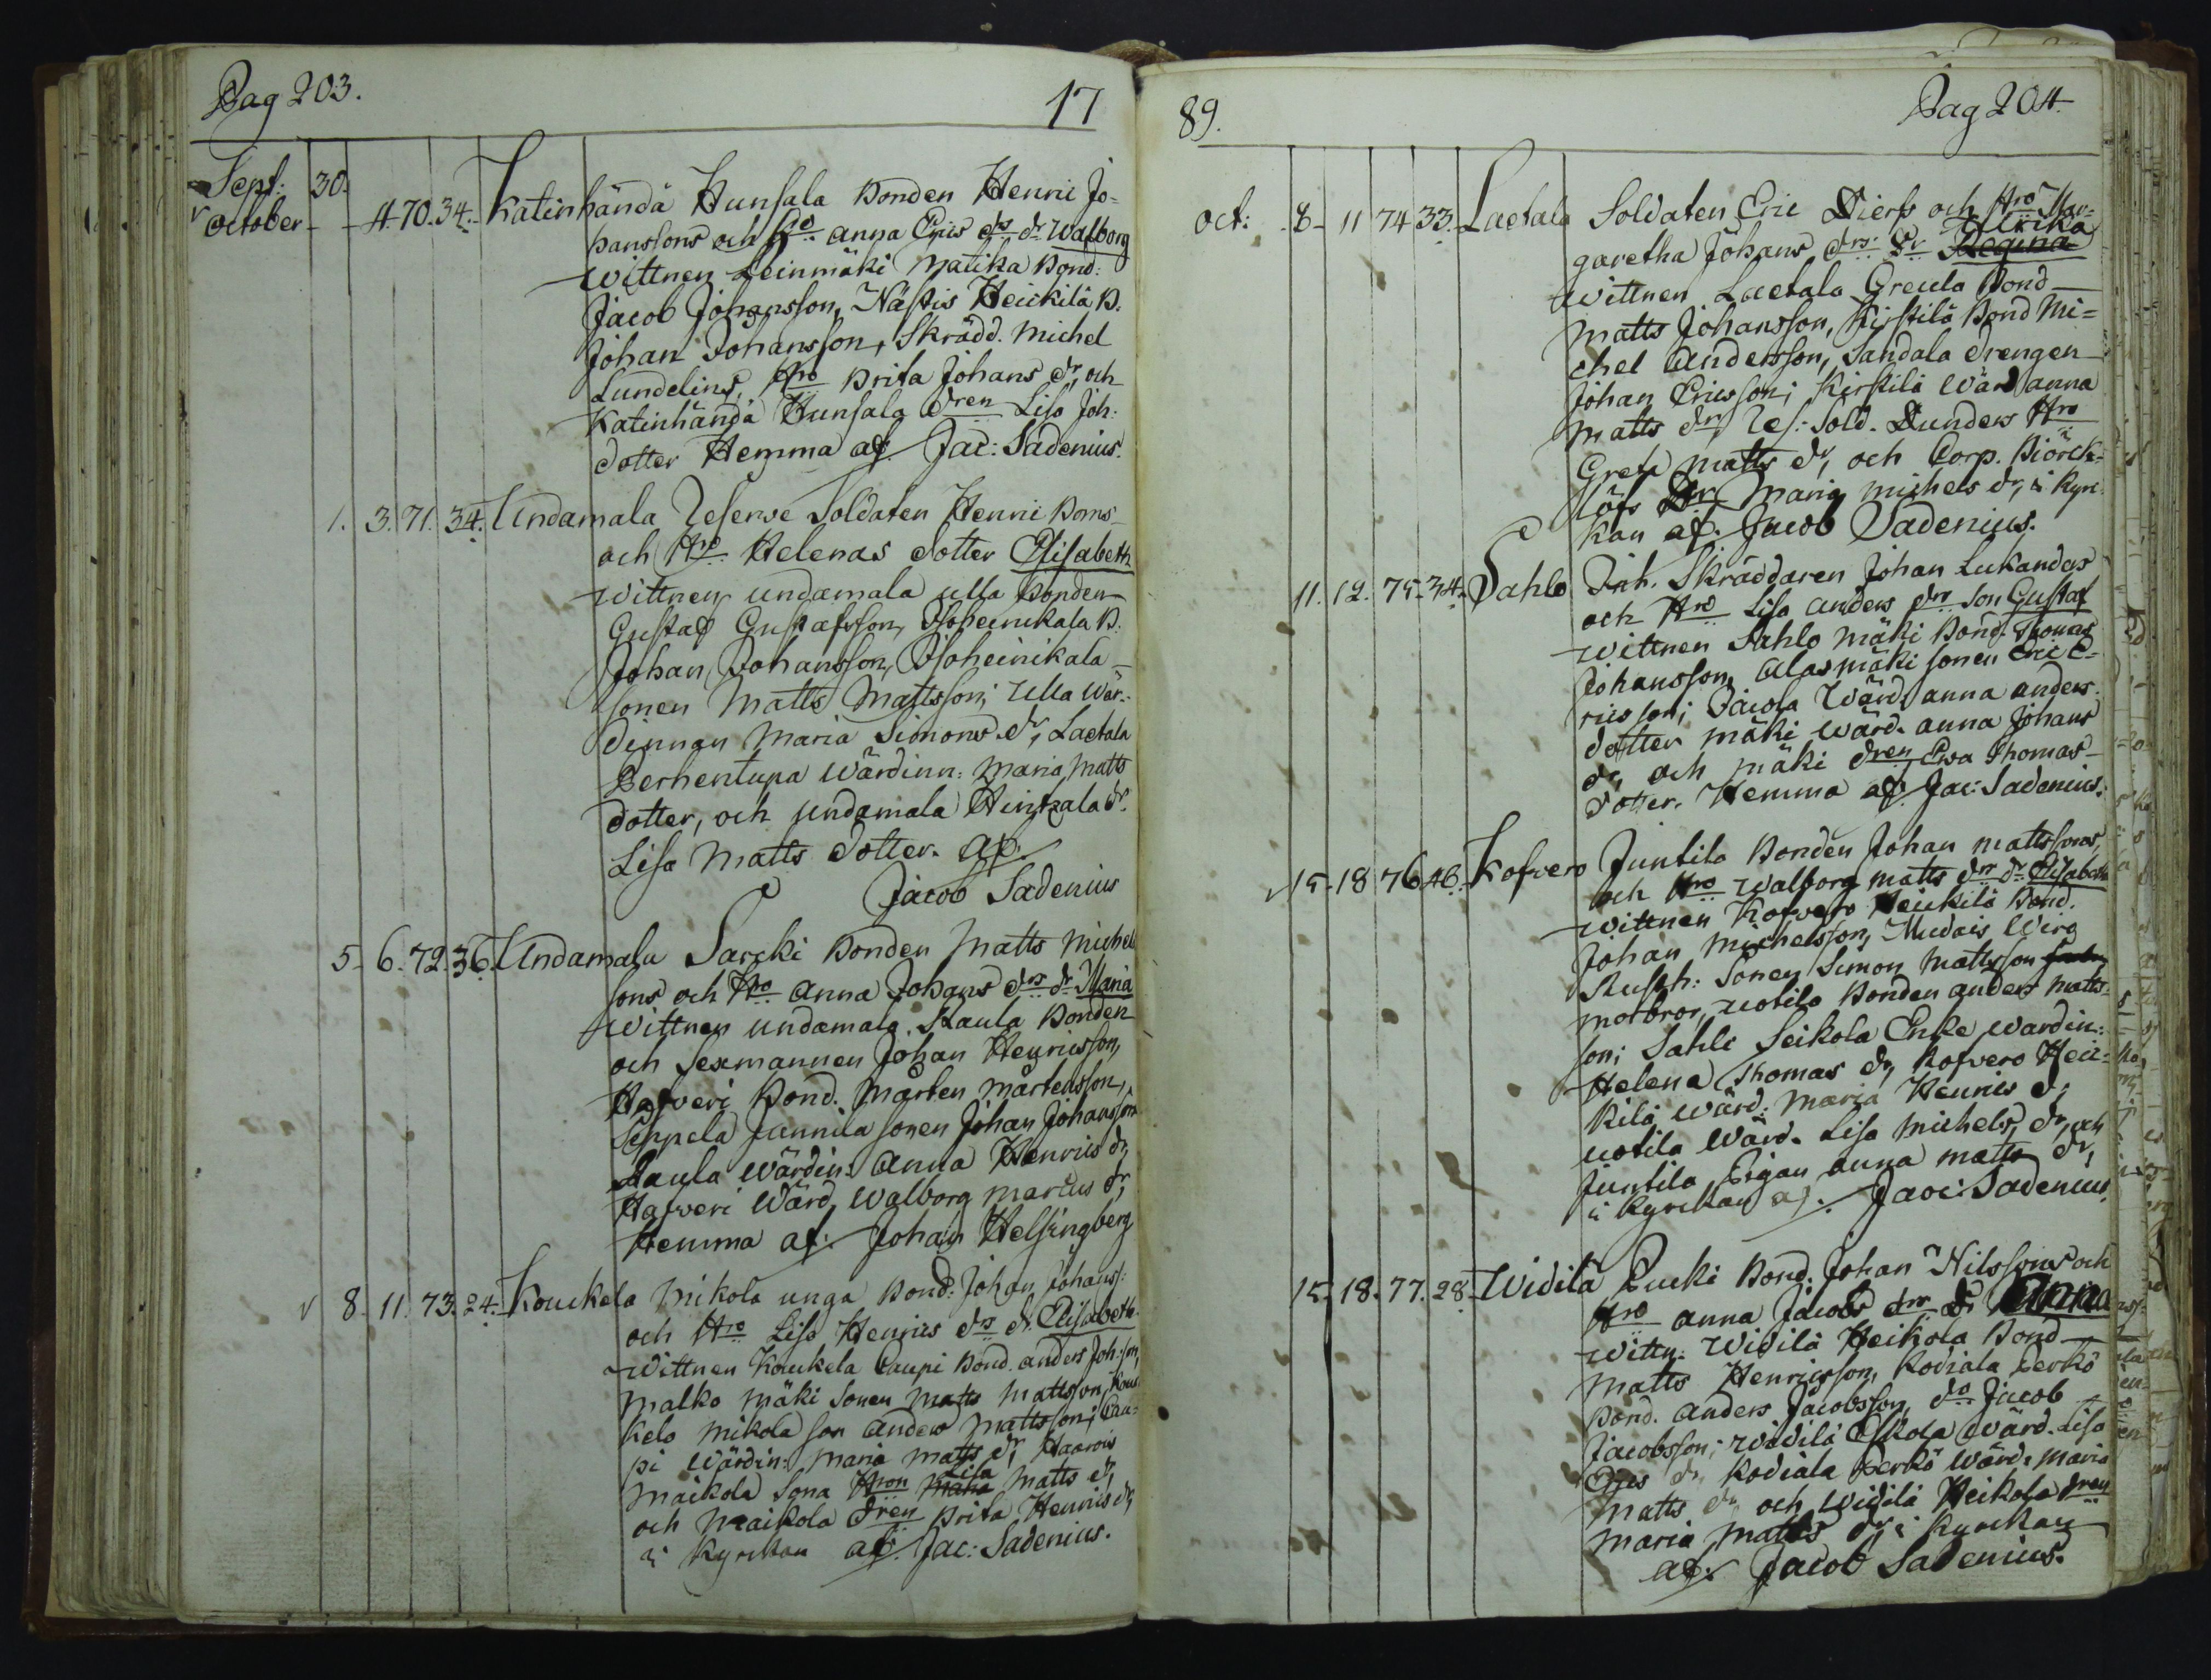 Pag 203.
17
Sept: 30.
October - - 4. 70. 34. Katinhändä Hunsala Bonden Henric Jo=
hanssons och Hro Anna Erics drs dr Walborg
Wittnen Leinmäki Matika Bond:
Jacob Johansson, Nästis Heickilä B.
Johan Johansson, Skrädd. Michel
Lundelins Hro Brita Johans dr, och
Katinhändä Hunsala dren Lisa Joh:
dotter Hemma af. Jac: Sadenius.
1. 3. 71. 34. Undamala Reserve Soldaten Henric Boms
och Hro Helenas dotter Elisabeth
Wittnen Undamala Ulla Bonden
Gustaf Gustafsson, Isoheinikala B.
Johan Johansson, Isoheinikala
sonen Matts Mattsson; Ulla Wär-
dinnan Maria Simons dr, Laetala
Perhentupa Wärdinn: Maria Matts
dotter, och Undamala Hinkala dr.
Lisa Matts dotter. af.
Jacob Sadenius
5. 6. 72. 36. Undamala Sarcki Bonden Matts Michels
sons och Hro Anna Johans drs dr Maria
Wittnen Undamala Kaula Bonden
och Sexmannen Johan Henricsson,
Hafveri Bond. Mårten Mårtensson,
Seppela Junnila sonen Johan Johansson
Kaula Wärdin: Anna Henrics dr,
Hafveri Wärd, Walborg Marcus dr,
Hemma af. Johan Helsingberg
v 8. 11. 73. 24. Kouckela Mikola unga Bond: Johan Johanss:
och Hro Lisa Henrics drs dr. Elisabeth.
Wittnen Kouckela Caupi Bond. Anders Joh:son,
Malko Mäki Sonen Matts Mattsson, Kouc
kela Mikola son Anders Mattsson; Cau=
pi Wärdin: Maria Matts dr, Haarois
Maikola Sona Hron Lisa Matts dr,
och Maikola dren Brita Henrics dr,
i Kyrckan af. Jac: Sadenius.
89.
Pag 204.
Oct: 8. 11 74 33. Laetala Soldaten Eric Diers och Hro Mar=
Ulrika
garetha Johans drs. Dr Regina
Wittnen Laetala Greula Bond
Matts Johansson, Kirstilä Bond Mi=
chel Andersson, Sandala Drengen
Johan Ericsson; Kirstilä Wärd Anna
Matts dr, Res: Sold. Dunders Hro
Greta Matts dr, och Corp. Biörck=
löfs Hr Maria Michels dr, i Kyrc
kan af. Jacob Sadenius.
11. 12. 75. 34. Sahlo Inh. Skräddaren Johan Lukandas
och Hro Lisa Anders drs Son Gustaf
Wittnen Sahlo Mäki Bond. Thomas
Johansson, Alasmäki sonen Eric E=
ricsson; Jacola Wärd. Anna Anders
dotter Mäki Wärd. Anna Johans
dr, och Mäki dren Ewa Thomas
dotter. Hemma af. Jac: Sadenius.
v 15. 18 76 46. Kofvero Juntila Bonden Johan Mattssons,
och Hro Walborg Matts drs dr Elisabeth
Wittnen Kofvero Heickilä Bond.
Johan Michelsson, Mudais Wirg
Rusth: Sonen Simon Mattsson
morbror, Uotila Bonden Anders Matts=
son; Sahlo Seikola Enke Wardin:
Helena Thomas dr, Kofvero Heic=
kilä Wärd: Maria Henrics dr,
Uotila Wärd. Lisa Michels dr, och
Juntila Pigan Anna Matts dr,
i Kyrckan af. Jac: Sadenius.
15. 18. 77. 28. Widilä Pucki Bond. Johan Nilssons och
Hro Anna Jacobs drs Dr Anna
Wittn: Widilä Heikola Bond
Matts Henricsson, Kodiala Perkö
Bond. Anders Jacobsson, do Jacob
Jacobsson; Widilä Eskola Wärd. Lisa
Erics dr, Kodiala Perkö Wärd: Maria
Matts dr, och Widilä Heikola dren
Maria Matts dr, i Kyrckan
af. Jacob Sadenius.